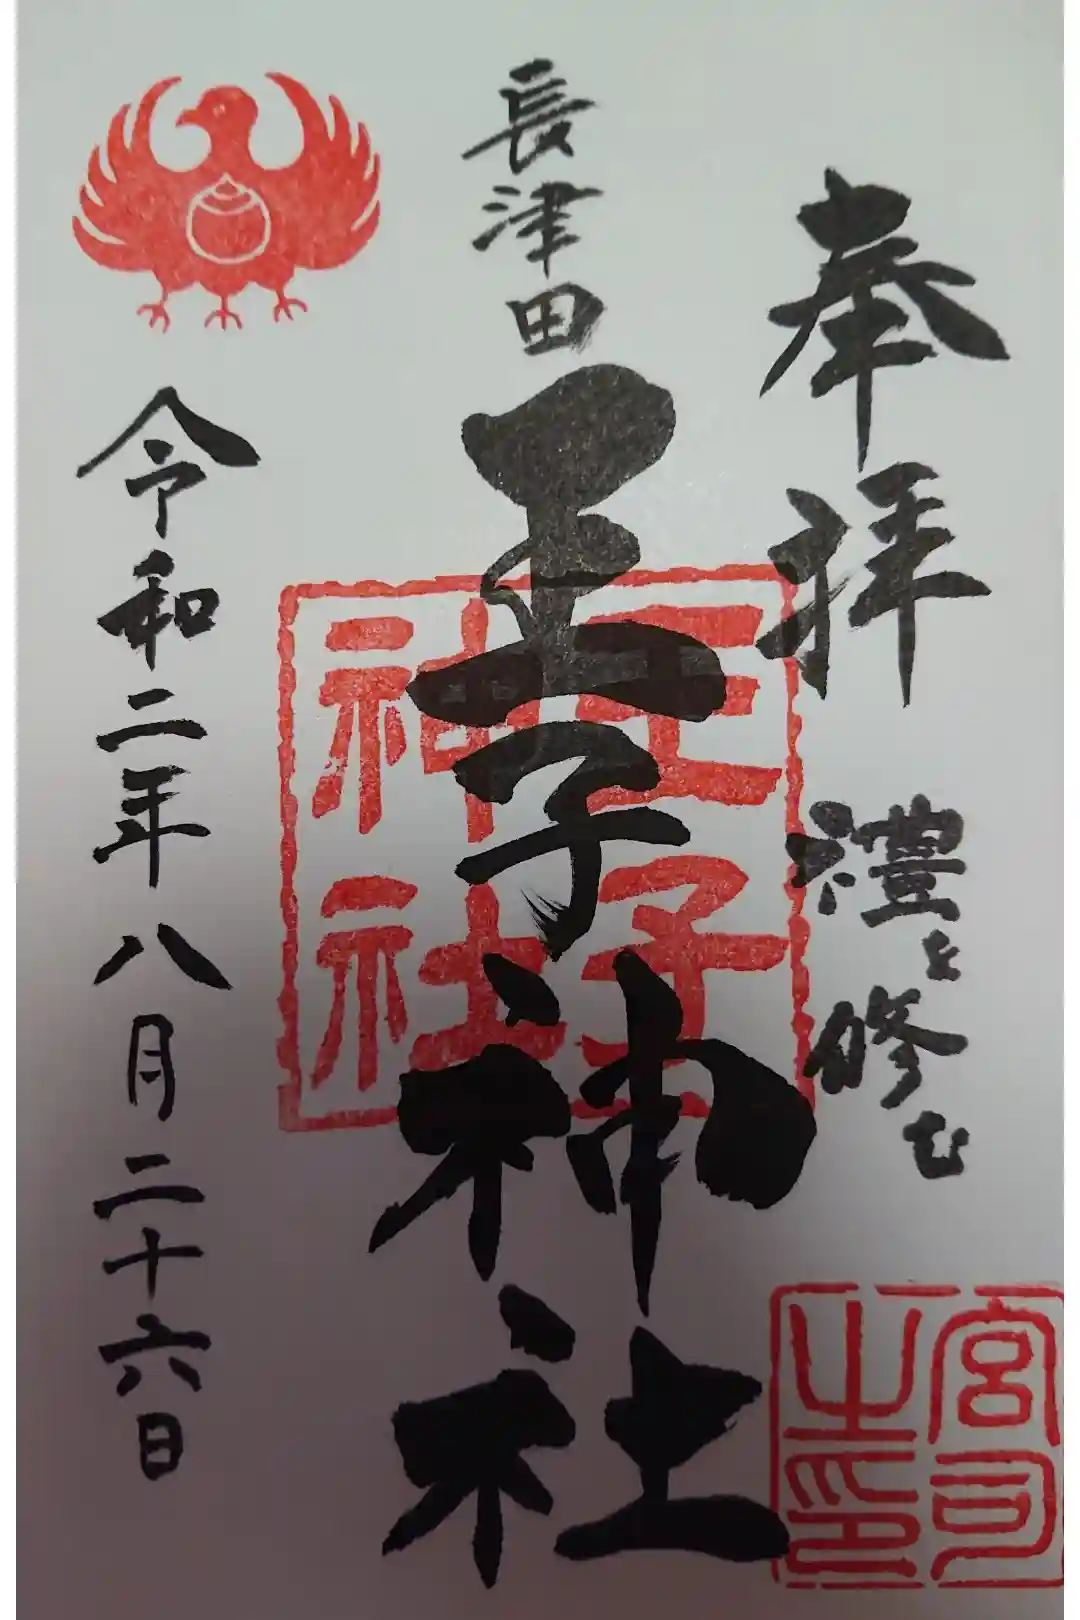 奉拝 禮を修む
長津田
王子神社
令和二年八月二十六日
王子
神社
宮司
之印